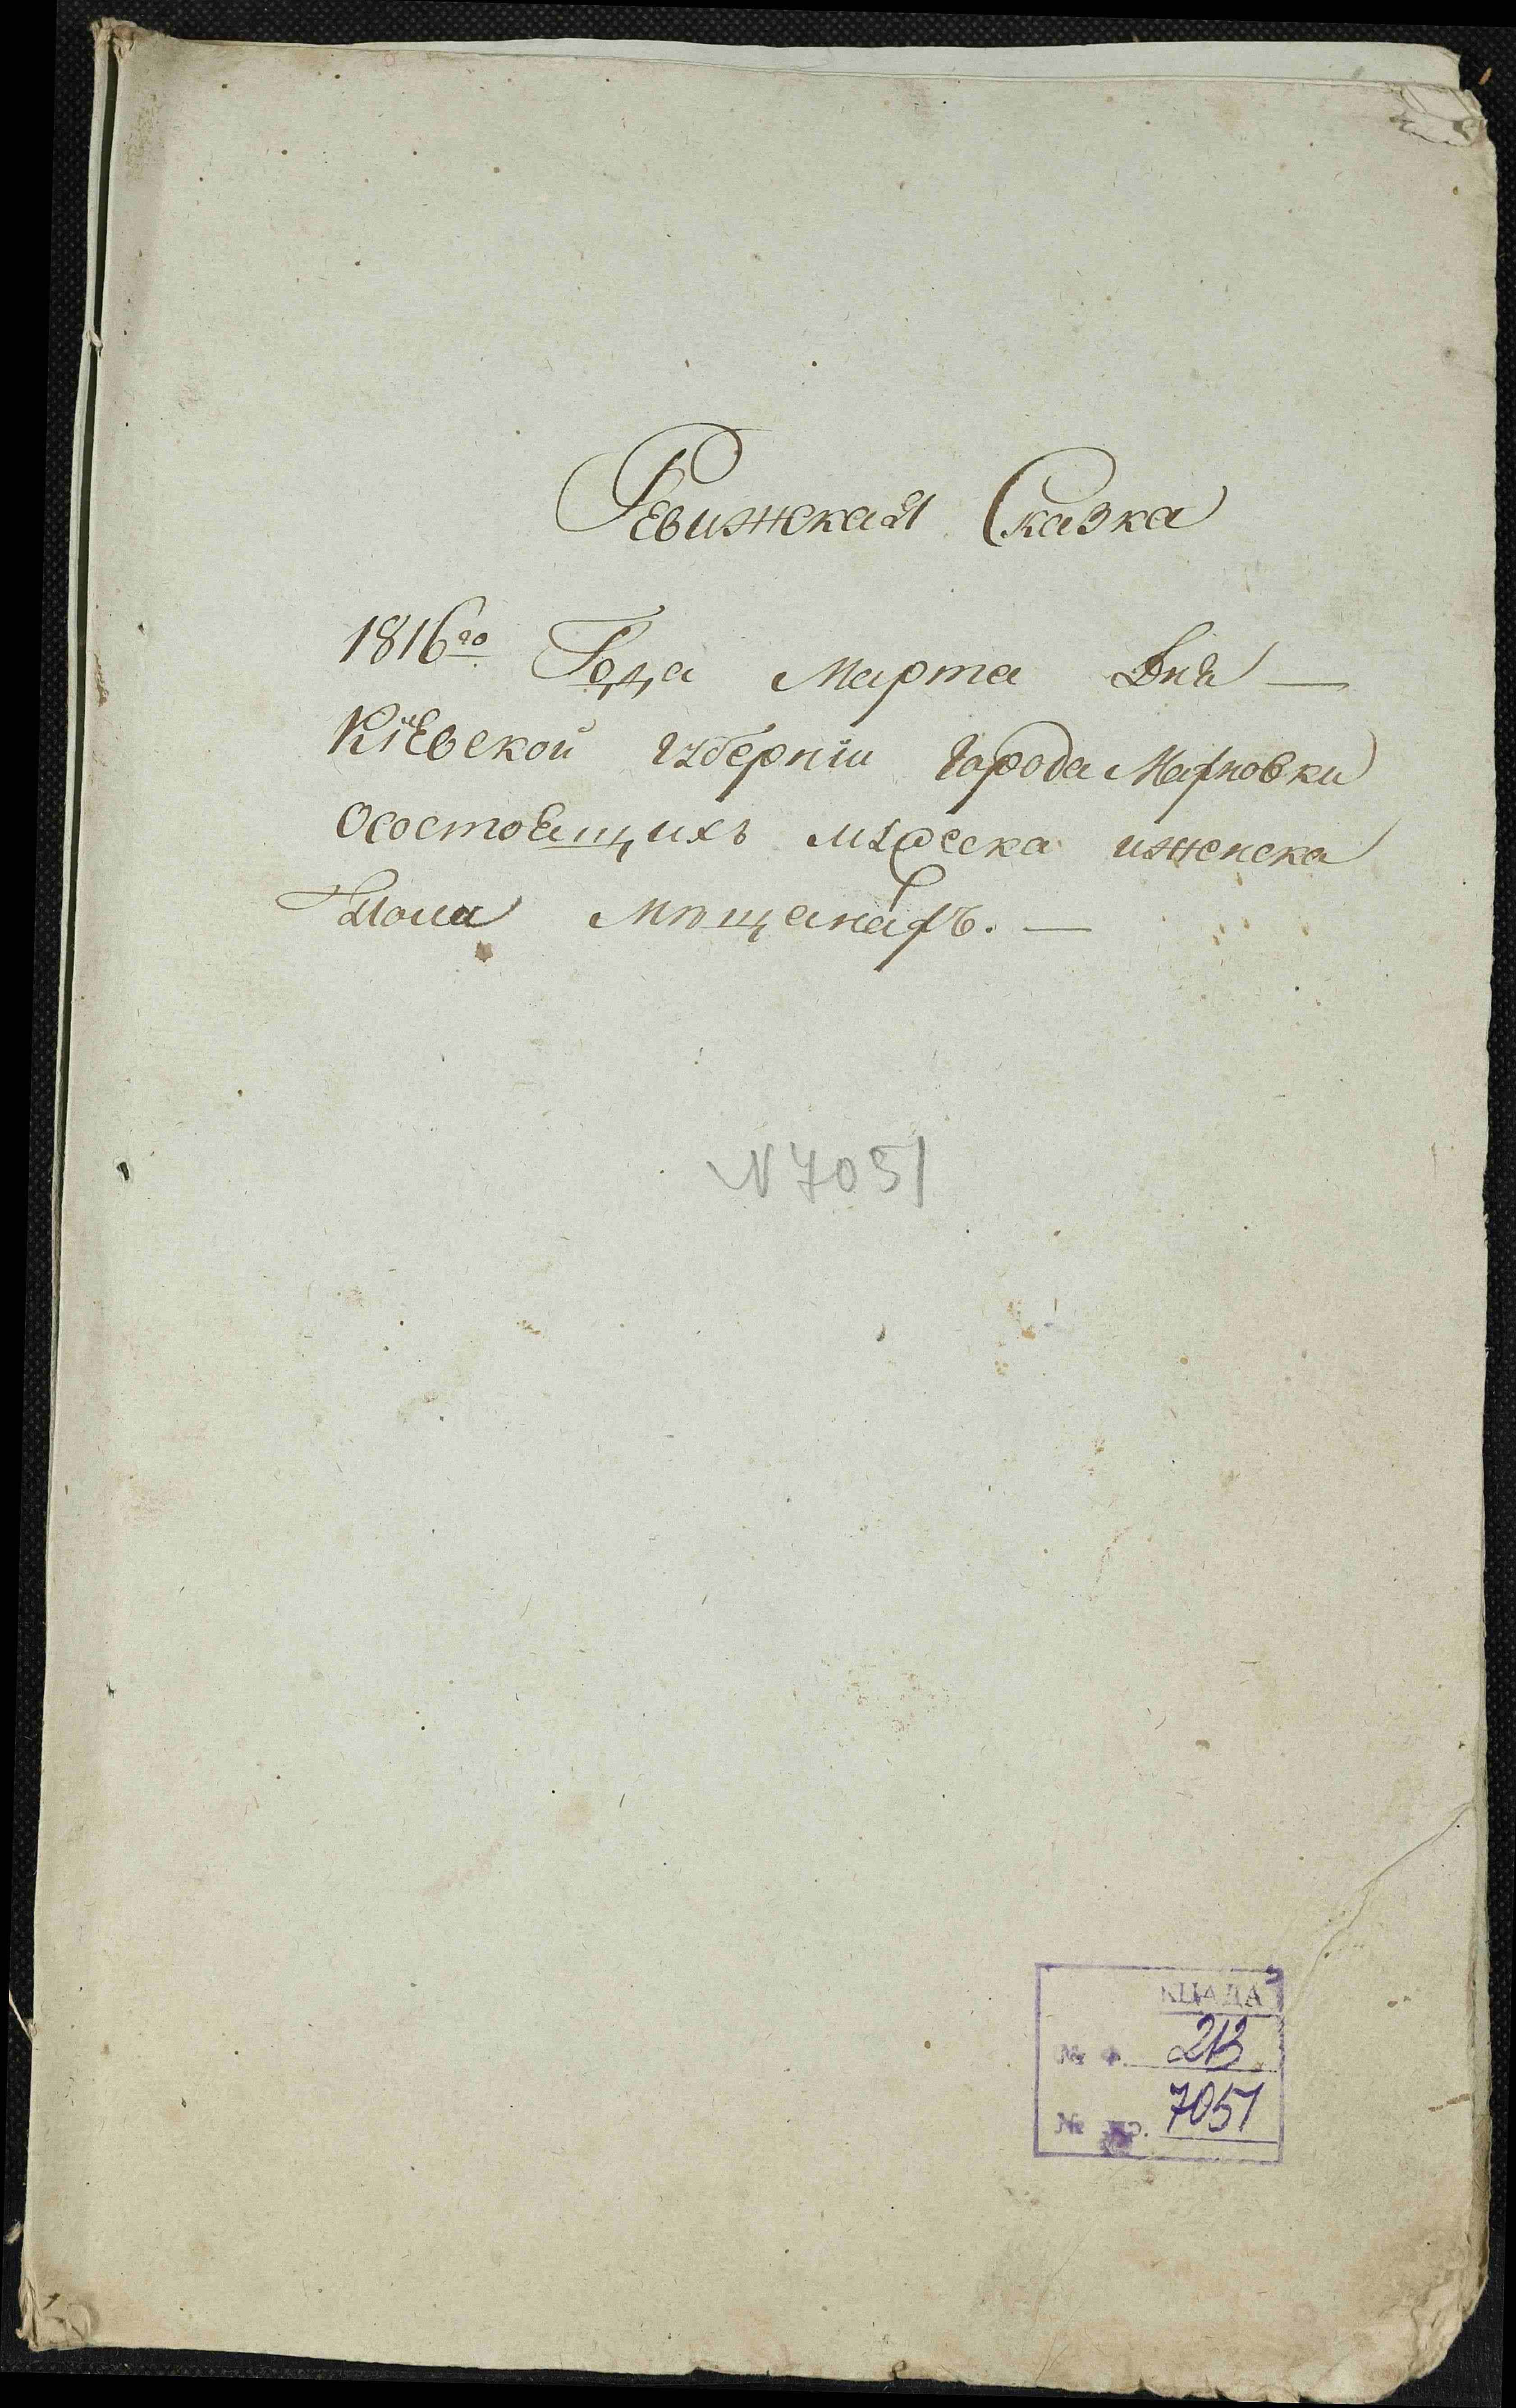 Ревижская Сказка
1816го Года Марта Дня —
Кіевской губерніи города Махновки
Осостоящихъ мужеска иженска
Пола мѣщанахъ. —
N 7051
КЦАДА
№ ф. 213
№ 7051